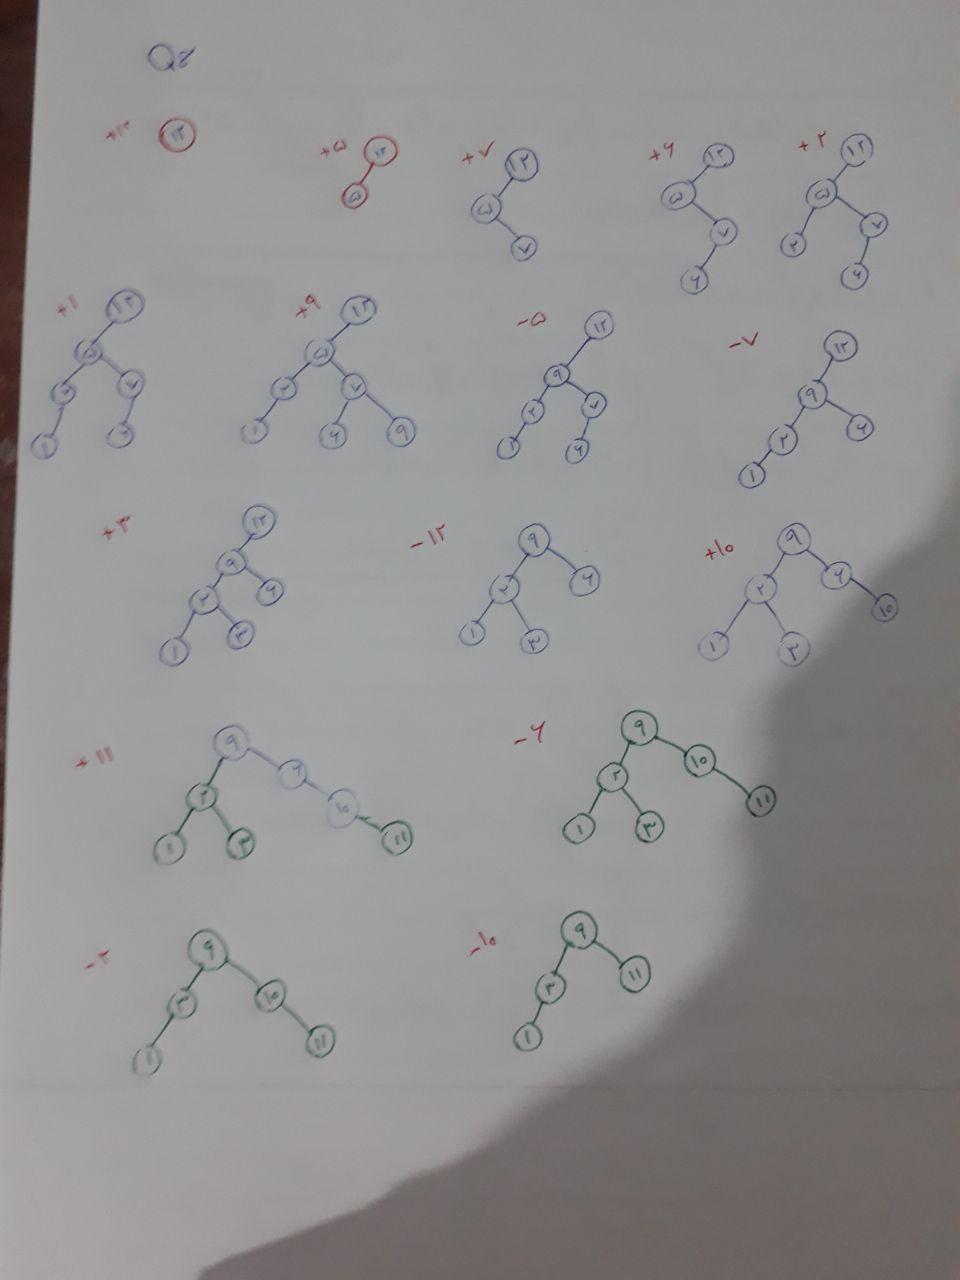 Q8
+۱۲ ۱۲
+۵ ۱۲ ۵
+۷ ۱۲ ۵ ۷
+۶ ۱۲ ۵ ۷ ۶
+۲ ۱۲ ۵ ۲ ۷ ۶
+۱ ۱۲ ۵ ۲ ۷ ۱ ۶
+۹ ۱۲ ۵ ۲ ۷ ۱ ۶ ۹
-۵ ۱۲ ۹ ۲ ۷ ۱ ۶
-۷ ۱۲ ۹ ۲ ۶ ۱
+۳ ۱۲ ۹ ۲ ۶ ۱ ۳
-۱۲ ۹ ۲ ۶ ۱ ۳
+۱۰ ۹ ۲ ۶ ۱ ۳ ۱۰
+۱۱ ۹ ۲ ۶ ۱ ۳ ۱۰ ۱۱
-۶ ۹ ۲ ۱۰ ۱ ۳ ۱۱
-۲ ۹ ۳ ۱۰ ۱ ۱۱
-۱۰ ۹ ۳ ۱۱ ۱